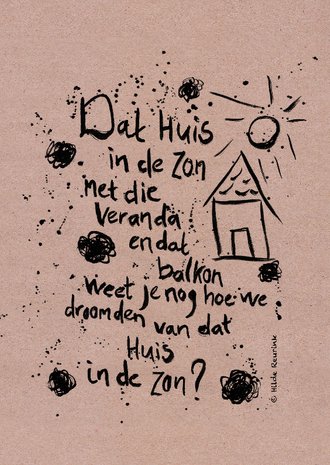 Dat Huis
in de zon
met die
veranda
en dat
balkon
weet je nog hoe we
droomden van dat
Huis
in de zon?
© Hilde Reurink